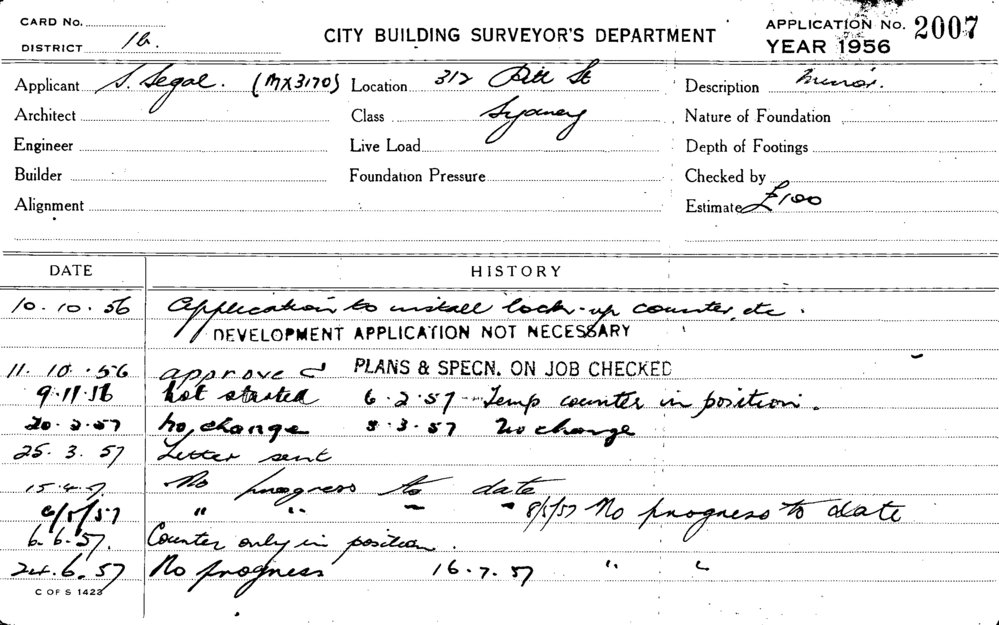 CARD No.
DISTRICT 1b.
CITY BUILDING SURVEYOR'S DEPARTMENT
APPLICATION No. 2007
YEAR 1956
Applicant S. Segal. (MX3170) Location 312 Pitt St Description Minor.
Architect Class Sydney Nature of Foundation
Engineer Live Load Depth of Footings
Builder Foundation Pressure Checked by
Alignment Estimate £100
DATE HISTORY
10.10.56 Application to install lock-up counter, etc.
DEVELOPMENT APPLICATION NOT NECESSARY
11.10.56 approved PLANS & SPECN. ON JOB CHECKED
9.11.56 Not started 6.2.57 Temp counter in position.
20.2.57 No change 8.3.57 No change
25.3.57 Letter sent
15.4.7. No progress to date
6/5/57 " " " " 8/5/57 No progress to date
6.6.57. Counter only in position.
24.6.57 No progress 16.7.57 " "
C OF S 1423